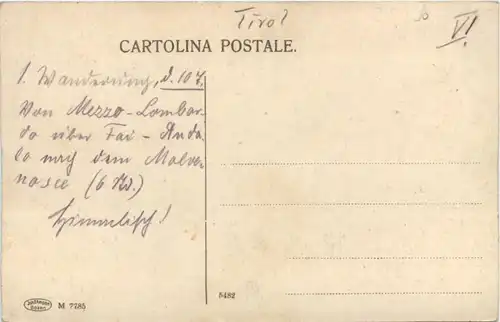 Tirol
VI
CARTOLINA POSTALE.
1. Wanderung, d. 10 7.
Von Mezzo-Lombar-
do über Fai - Anda-
lo nach dem Molve-
nosee (6 Std.)
himmlisch!
M 7285
5482